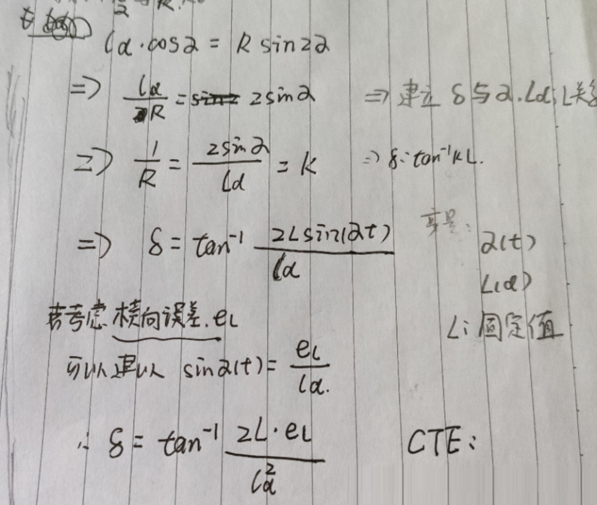 ld·cosα = R sin2α
⇒ ld/R = 2sinα ⇒ 建立 δ与α.Ld,L关系
⇒ 1/R = 2sinα/ld = K ⇒ δ=tan⁻¹KL.
⇒ δ = tan⁻¹ 2Lsin(αt)/ld 变量:
α(t)
L(d)
L: 固定值
若考虑 横向误差.eL
可以 sinα(t) = eL/ld.
∴ δ = tan⁻¹ 2L·eL/ld² CTE: